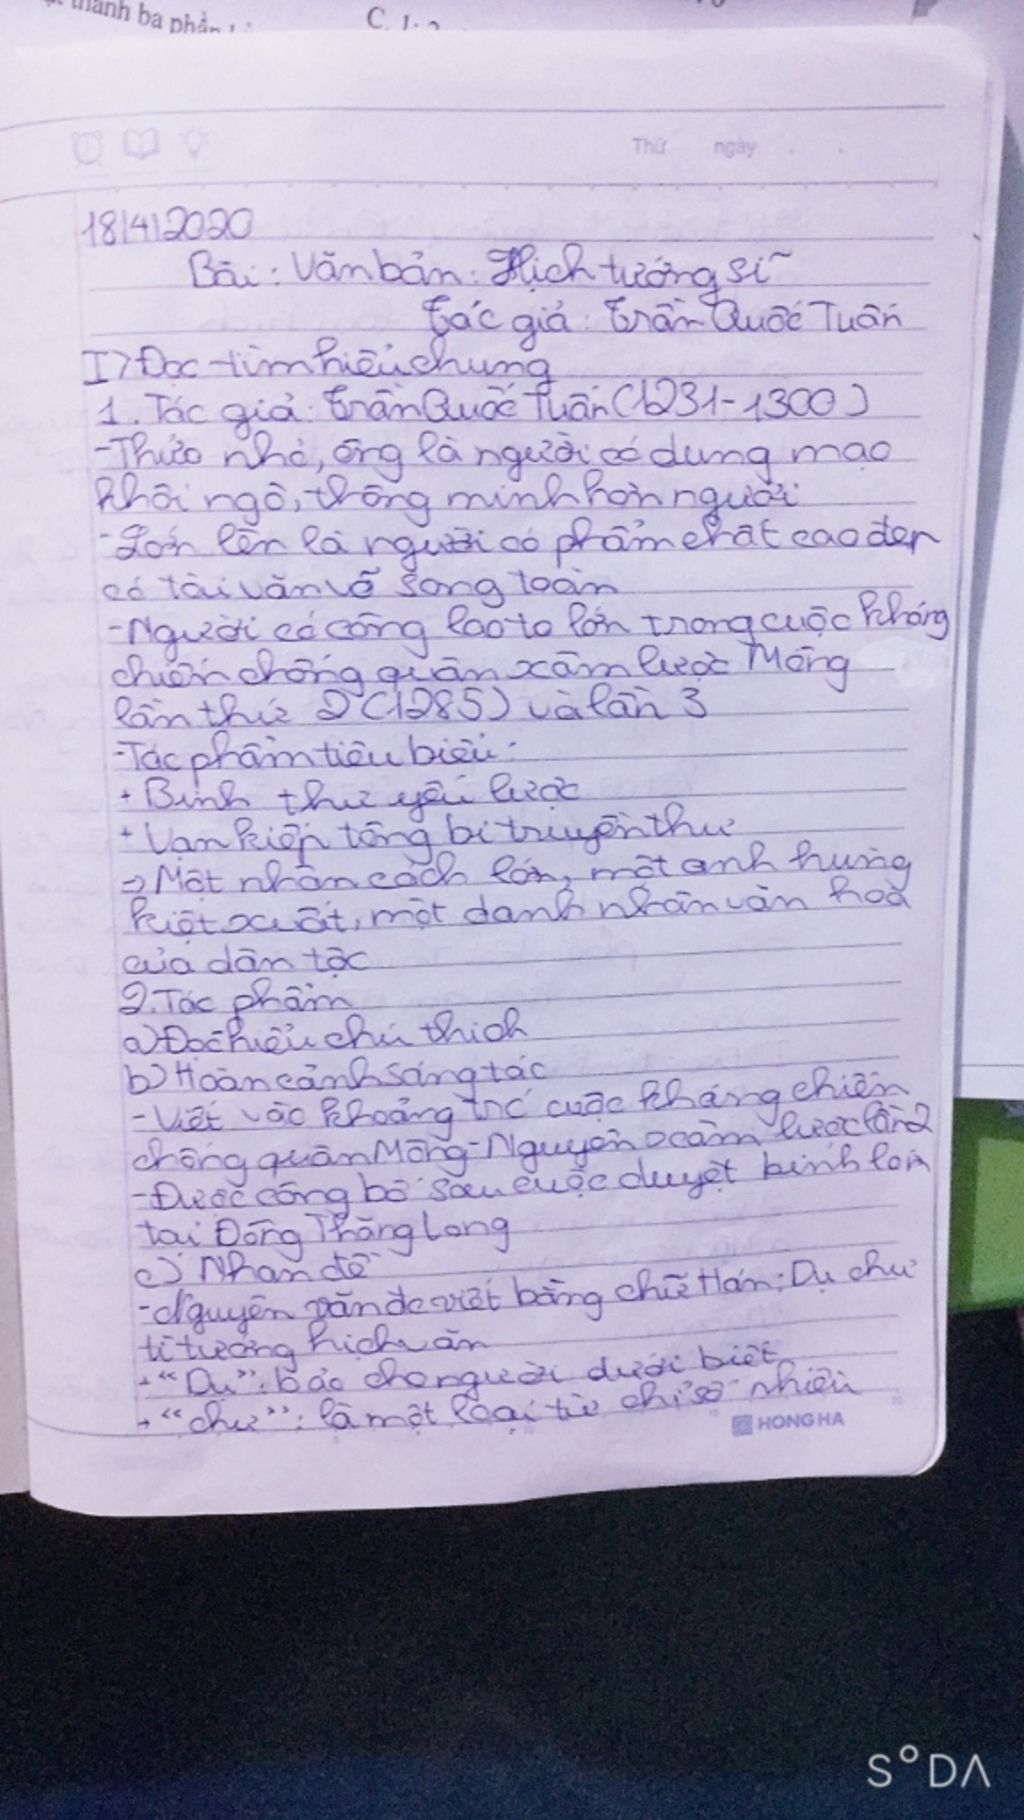 thành ba phần
Thứ ngày
18/4/2020
Bài: Văn bản: Hịch tướng sĩ
Tác giả: Trần Quốc Tuấn
I> Đọc - tìm hiểu chung
1. Tác giả: Trần Quốc Tuấn (1231-1300)
- Thưở nhỏ, ông là người có dung mạo
khôi ngô, thông minh hơn người
- Lớn lên là người có phẩm chất cao đẹp
có tài văn võ song toàn
- Người có công lao to lớn trong cuộc kháng
chiến chống quân xâm lược Mông
lần thứ 2 (1285) và lần 3
- Tác phẩm tiêu biểu:
+ Binh thư yếu lược
+ Vạn kiếp tông bí truyền thư
=> Một nhân cách lớn, một anh hùng
kiệt xuất, một danh nhân văn hoá
của dân tộc
2. Tác phẩm
a) Đọc hiểu chú thích
b) Hoàn cảnh sáng tác
- Viết vào khoảng trc cuộc kháng chiến
chống quân Mông-Nguyên xâm lược lần 2
- Được công bố sau cuộc duyệt binh lớn
tại Đông Thăng Long
c) Nhan đề
- Nguyên văn đc viết bằng chữ Hán: Dụ chư
tì tướng hịch văn
+ "Dụ": bảo cho người dưới biết
+ "chư": là một loại từ chỉ số nhiều
HONG HA
SODA